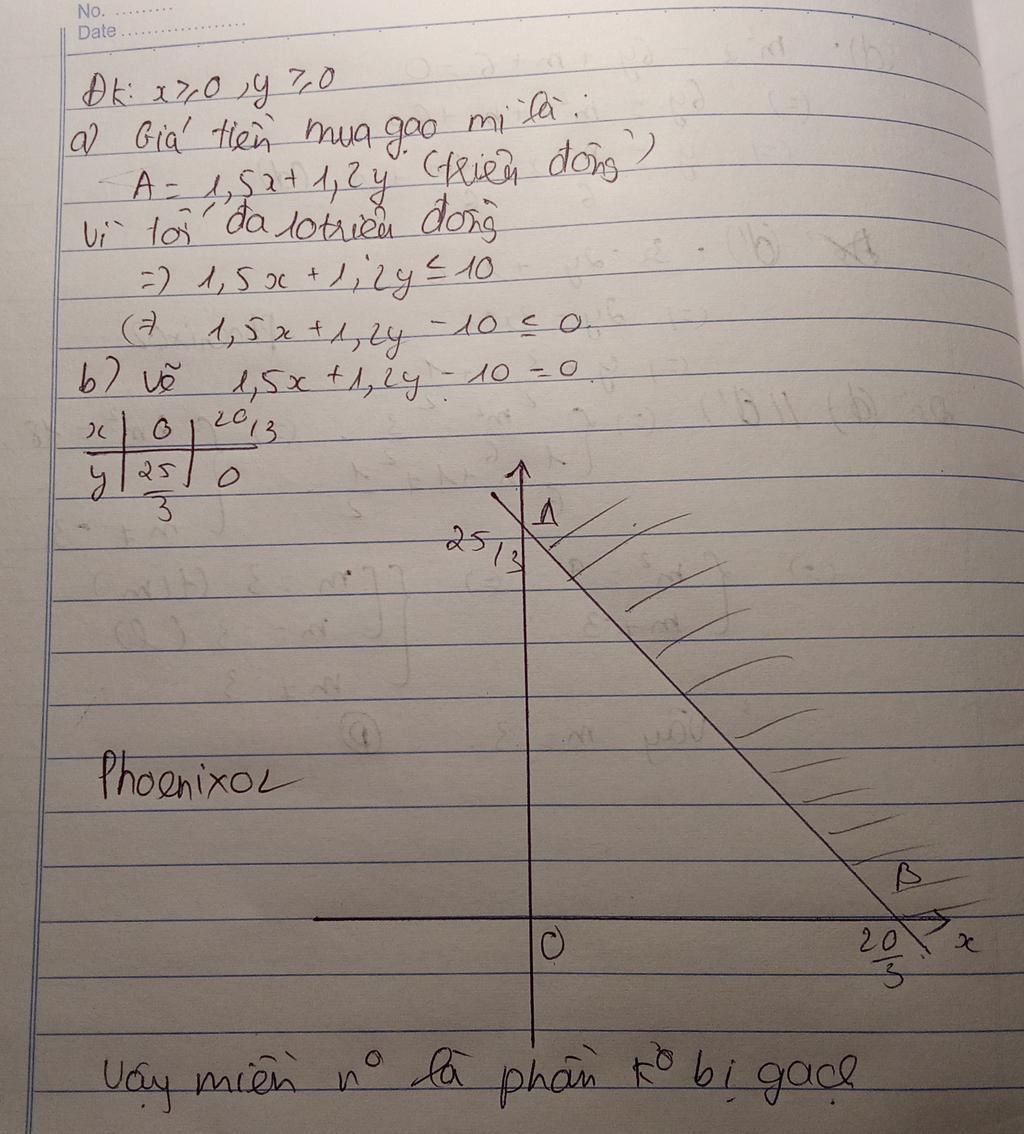 No. .........
Date ..................
ĐK: x ≥ 0, y ≥ 0
a) Giá tiền mua gạo mì là:
A = 1,5x + 1,2y (triệu đồng)
Vì tối đa 10 triệu đồng
=> 1,5x + 1,2y ≤ 10
(=> 1,5x + 1,2y - 10 ≤ 0
b) Vẽ 1,5x + 1,2y - 10 = 0
x | 0 | 20/3
y | 25/3 | 0
A
25/3
Phoenixoz
B
O
20/3
x
Vậy miền n° là phần k° bị gạch